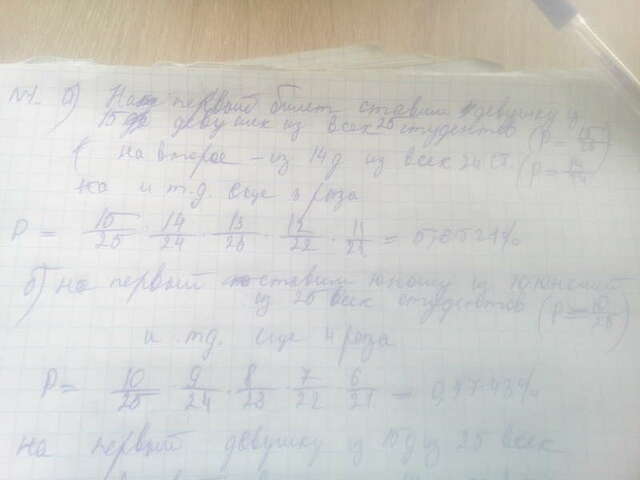 N1. а) На первый билет ставим девушку из
15 девушек из всех 25 студентов (P = 15/25)
на второе - из 14 д из всех 24 ст. (P = 14/24)
и т.д. еще 3 раза
P = 15/25 · 14/24 · 13/23 · 12/22 · 11/21 =
б) на первый ставим юношу из
из 25 всех студентов (P = 10/25)
и т.д. еще 4 раза
P = 10/25 · 9/24 · 8/23 · 7/22 · 6/21 = 0,4743%
на первый девушку из 15 д из 25 всех